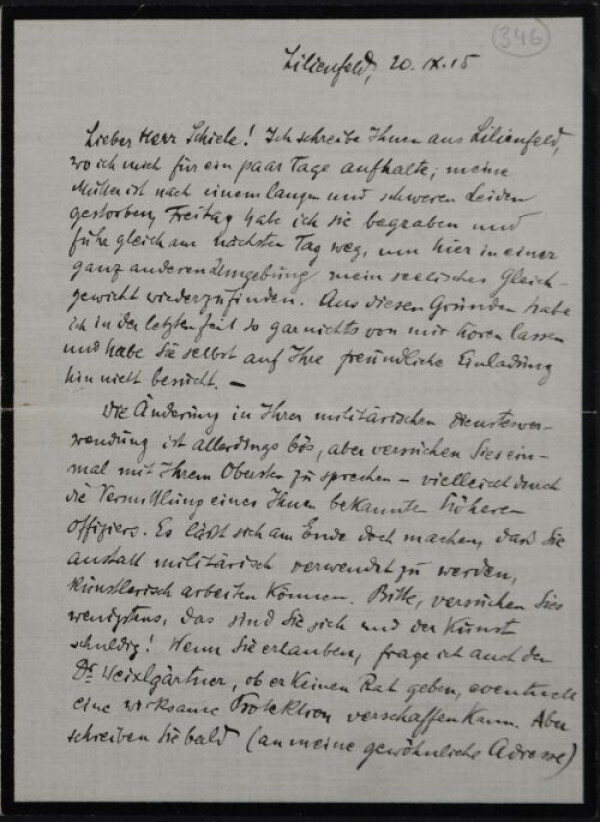 346
Lilienfeld, 20. IX. 15
Lieber Herr Schiele! Ich schreibe Ihnen aus Lilienfeld,
wo ich mich für ein paar Tage aufhalte; meine
Mutter ist nach einem langen und schweren Leiden
gestorben, Freitag habe ich sie begraben und
fuhr gleich am nächsten Tag weg, um hier in einer
ganz anderen Umgebung mein seelisches Gleich-
gewicht wiederzufinden. Aus diesen Gründen habe
ich in der letzten Zeit so gar nichts von mir hören lassen
und habe Sie selbst auf Ihre freundliche Einladung
hin nicht besucht. —
Die Änderung in Ihrer militärischen Dienstesver-
wendung ist allerdings bös, aber versuchen Sies ein-
mal mit Ihrem Obersten zu sprechen – vielleicht durch
die Vermittlung eines Ihnen bekannten höheren
Offiziers. Es läßt sich am Ende doch machen, dass Sie
anstatt militärisch verwendet zu werden,
künstlerisch arbeiten können. Bitte, versuchen Sies
wenigstens, das sind Sie sich und der Kunst
schuldig! Wenn Sie erlauben, frage ich auch den
Dr. Weixlgärtner, ob er keinen Rat geben, eventuell
eine wirksame Protektion verschaffen kann. Aber
schreiben Sie bald (an meine gewöhnliche Adresse)